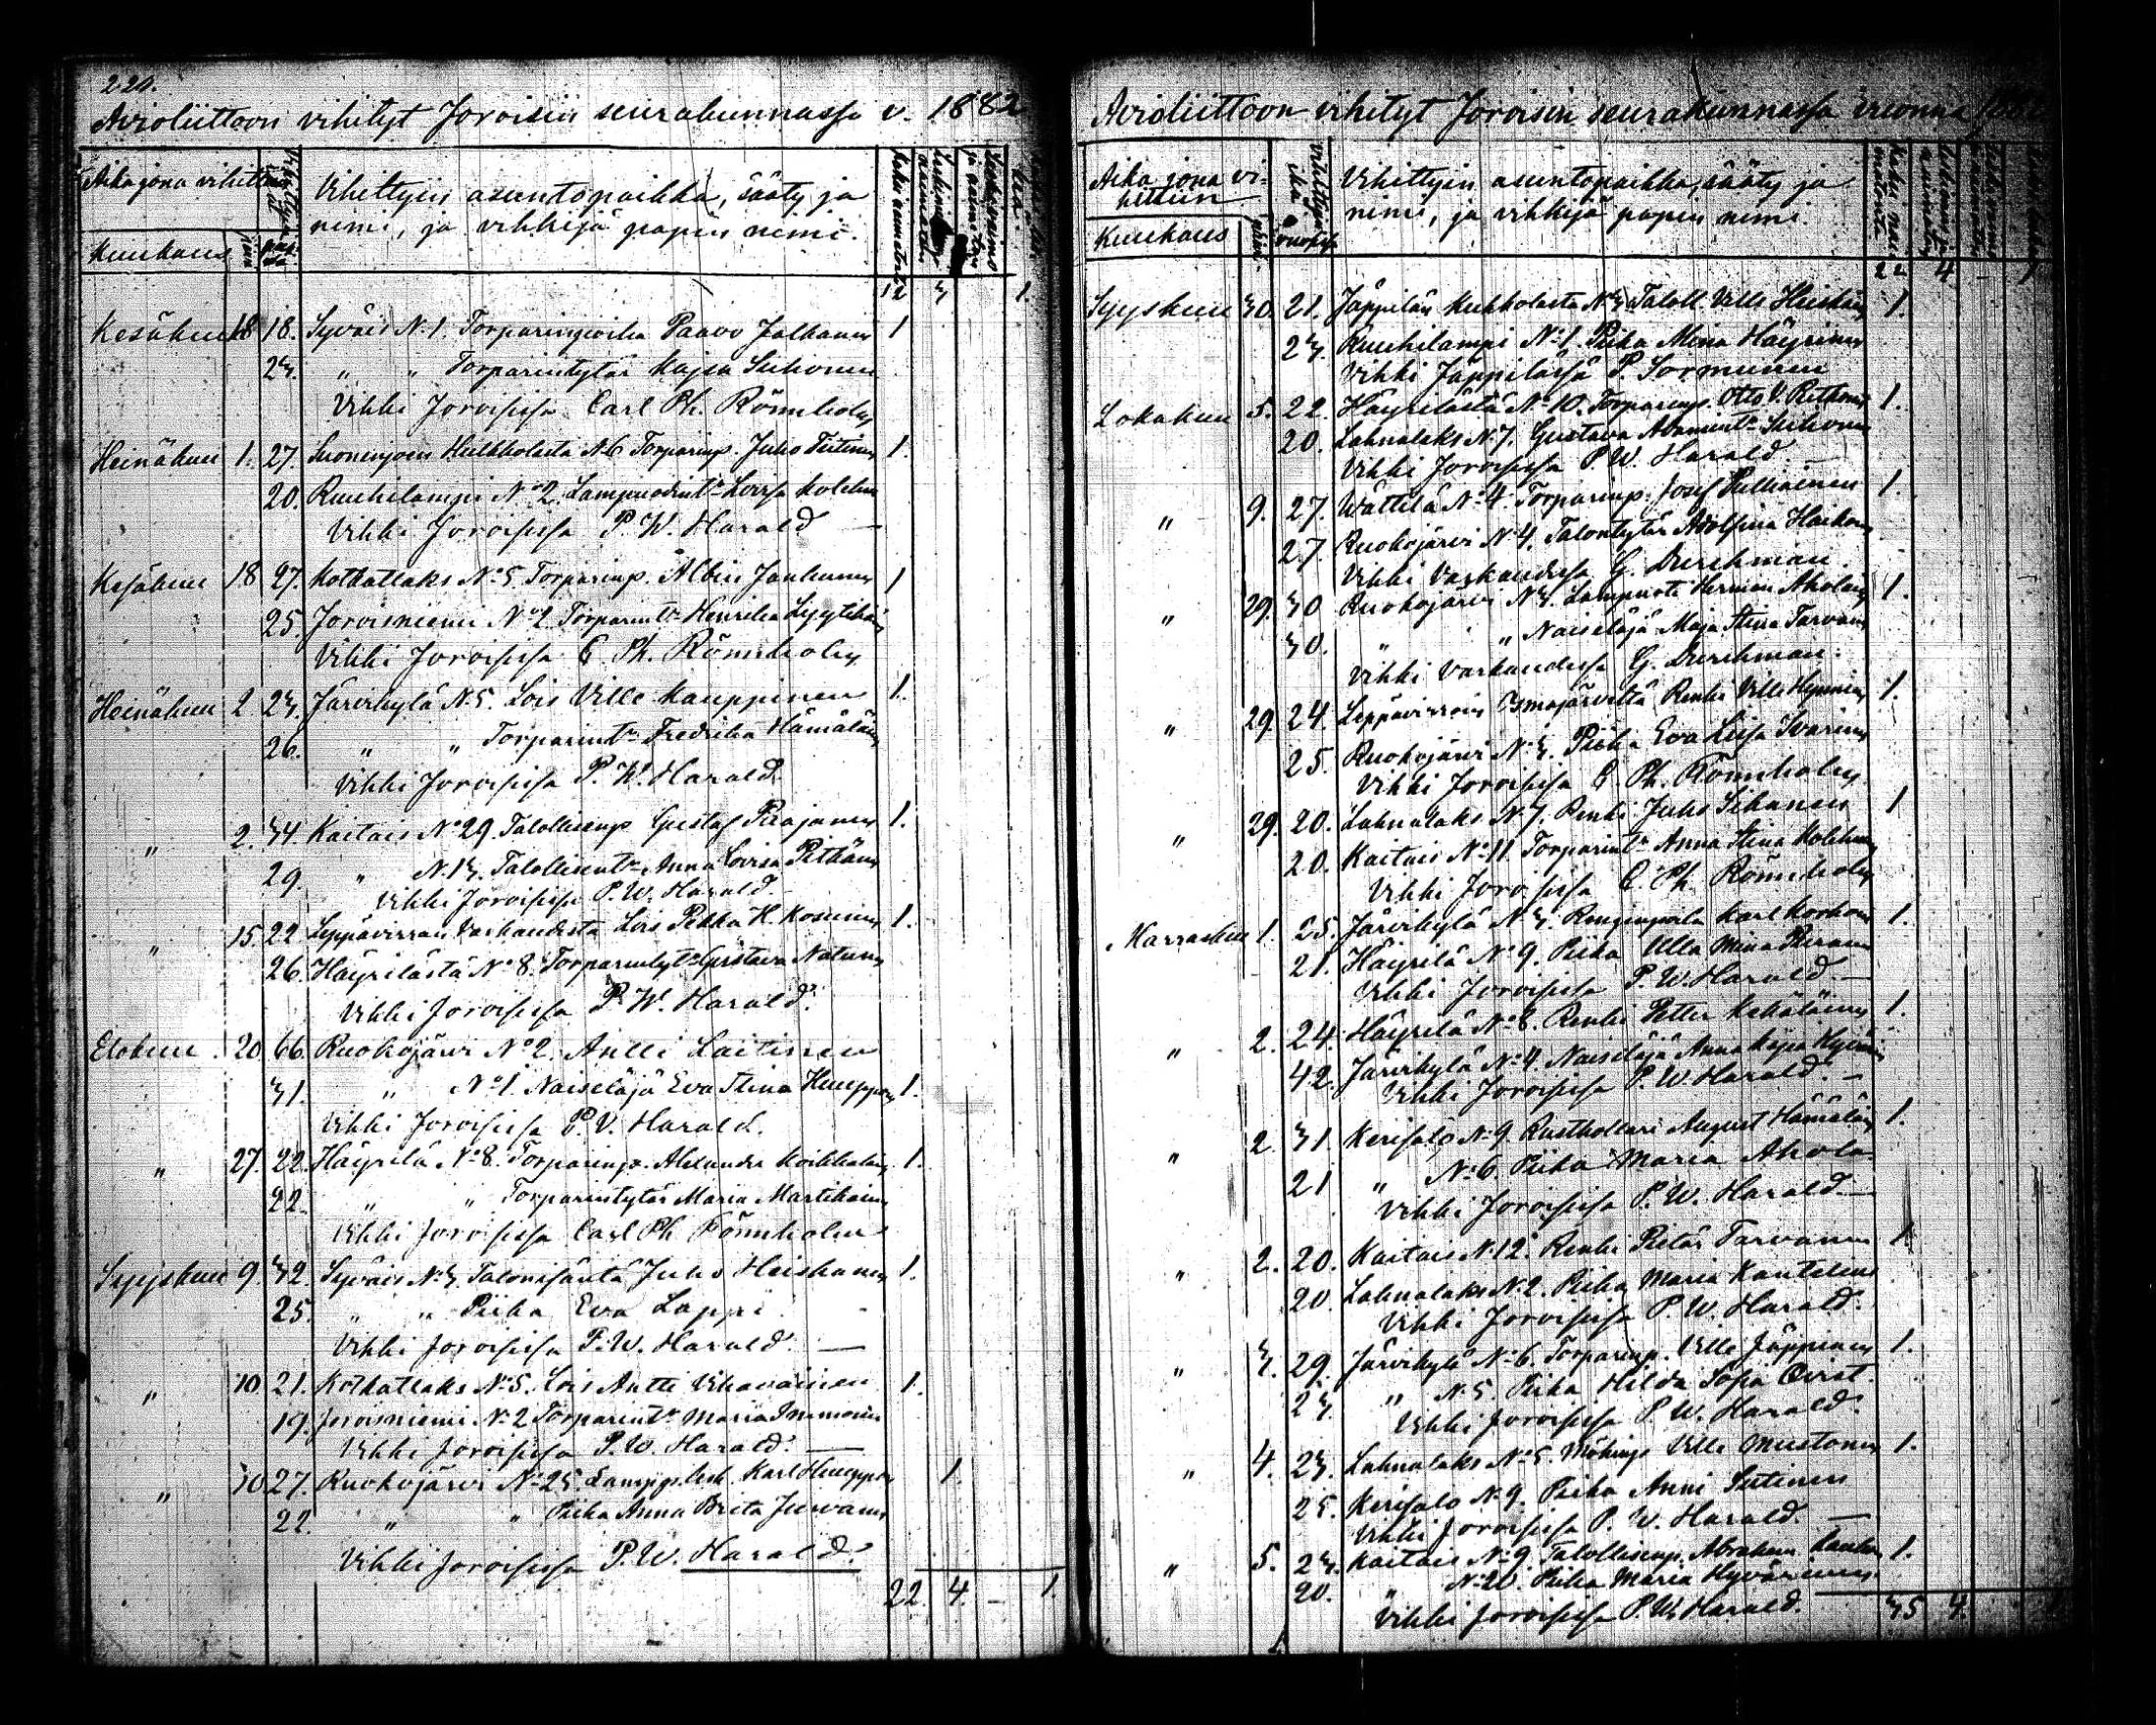 220.
Avioliittoon vihityt Joroisiin seurakunnassa v. 1882
Aika jona vihittiin
Vihittyin asuntopaikka, sääty ja
nimi, ja vihkijä papin nimi.
Kuukaus
12 3 1.
Kesäkuu 18 18. Syväis N.1. Torparinpoika Paavo Jalkanen 1
23. " " Torparintytär Kajsa Suhonen
Vihki Joroisissa Carl Ph. Rönnholm
Heinäkuu 1. 27. Suoninjoen Hulkkolasta N6 Torparinp. Juho Tiitinen 1.
20. Ruuhilampi No 2. Lampuodint. Lovisa Kolehm
Vihki Joroisissa P. W. Harald —
Kesäkuu 18 27. Kotkatlaks No 5. Torparinp. Albin Janhunen 1
25. Joroisniemi No 2. Torparint. Henrika Lyytikäin
Vihki Joroisissa C Ph. Rönnholm
Heinäkuu 2 23. Järvikylä N.5. Lois Ville Kauppinen 1.
26. " " Torparint. Fredrika Hämäläin
Vihki Joroisissa P. W. Harald.
" 2. 34. Kaitais No 29. Talollisenp. Gustaf Paajanen 1.
29. " N.13. Talollisent. Anna Lovisa Pitkänen
Vihki Joroisissa P. W. Harald.
" 15. 22 Leppävirran Varkaudesta Lois Pekka H. Kosunen 1.
26. Häyrilästä No 8. Torparintyt. Gustava Natunen
Vihki Joroisissa P. W. Harald.
Elokuu 20. 66. Ruokojärvi No 2. Antti Laitinen
31. " No 1. Naiseläjä Eva Stina Huuppon 1.
Vihki Joroisissa P. V. Harald.
" 27. 22. Häyrilä No 8. Torparinp. Alexander Koikkalain 1.
22. " " Torparintytär Maria Martikain
Vihki Joroisissa Carl Ph Rönnholm
Syyskuu 9. 32. Syväis N.3. Talonisäntä Juho Heiskanen 1.
25. " " Piika Eva Lappi
Vihki Joroisissa P. W. Harald. —
" 10 21. Kotkatlaks No 5. Lois Antti Vihavainen 1.
19. Joroisniemi No 2 Torparint. Maria Immonen
Vihki Joroisissa P. W. Harald. —
" 10 27. Ruokojärvi No 25. Lampp. lesk. Karl Huuppon 1.
22. " " Piika Anna Brita Juvanen
Vihki Joroisissa P. W. Harald.
22. 4. – 1.
Avioliittoon vihityt Joroisin seurakunnassa vuonna 1882
Aika jona vi-
hittiin
Vihittyin asuntopaikka, sääty ja
nimi, ja vihkijä papin nimi.
Kuukaus
22 4 – 1
Syyskuu 30. 21. Jäppilän Kukkolasta No 3 Taloll. Ville Heiskan 1.
23. Ruuhilampi No 1. Piika Mina Häyrinen
Vihki Jäppilässä P. Sormunen
Lokakuu 5. 22. Häyrilästä No 10. Torparinp. Otto V. Ritkonen 1.
20. Lahnalaks N.7. Gustava Adamint. Suihonen
Vihki Joroisissa P. W. Harald —
" 9. 27. Wättilä No 4. Torparinp. Josef Pulliainen 1.
27. Ruokojärvi N.4. Talontytär Adolfina Haikon
Vihki Varkaudessa G. Durchman.
" 29. 30 Ruokojärvi N3. Lampuoti Herman Aholain 1.
30. " " Naiseläjä Maja Stina Tarvain
Vihki Varkaudessa G. Durchman.
" 29. 24. Leppävirroin Osmajärveltä Renki Ville Hynnin 1.
25. Ruokojärvi N.3. Piika Eva Liisa Ivarinen
Vihki Joroisissa C. Ph. Rönnholm.
" 29. 20. Lahnalaks N7. Renki Juho Sihvonen 1
20. Kaitais No 11 Torparint. Anna Stina Kolehm
Vihki Joroisissa C. Ph. Rönnholm
Marraskuu 1. 25. Järvikylä No 3. Renginpoika Karl Korhon 1.
21. Häyrilä No 9. Piika Ulla Mina Pieran
Vihki Joroisissa P. W. Harald. —
" 2. 24. Häyrilä No 8. Renki Petter Kekäläinen 1.
42. Järvikylä No 4 Naiseläjä Anna Kajsa Hyvän
Vihki Joroisissa P. W. Harald. —
" 2 31. Kerisalo, No 9. Rusthollari August Hämäläin 1.
21 " No 6. Piika Maria Ahola
Vihki Joroisissa P. W. Harald. —
" 2. 20. Kaitais N.12. Renki Pietar Tarvainen 1
20. Lahnalaks N.2. Piika Maria Kautelin
Vihki Joroisissa P. W. Harald.
" 3. 29. Järvikylä No 6. Torparinp. Ville Jäppinen 1.
23. " N.5. Piika Hilda Sofia Qvist.
Vihki Joroisissa P. W. Harald.
" 4. 23. Lahnalaks No 5. Mökinp. Ville Mustonen 1.
25. Kerisalo N.9. Piika Anni Sutinen
Vihki Joroisissa P. W. Harald. —
" 5. 23. Kaitais No 9. Talollisenp. Abraham 1.
20. " No 20. Piika Maria Hyvärinen
Vihki Joroisissa P. W. Harald.
35 4.